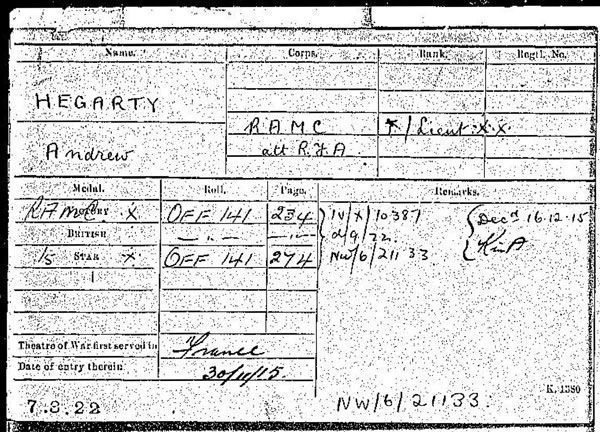 Name. Corps. Rank. Regtl. No.
HEGARTY
R A M C */Lieut. x. x.
Andrew att R.F.A.
Medal. Roll. Page. Remarks.
RAMC VICTORY x OFF 141 234 IV/X/10387 Decd 16.12.15
BRITISH —„— —„— d/9/22. KinA
15 STAR x. OFF 141 274 NW/6/21133
Theatre of War first served in France
Date of entry therein 30/11/15
K. 1380
7.3.22 NW/6/21133.